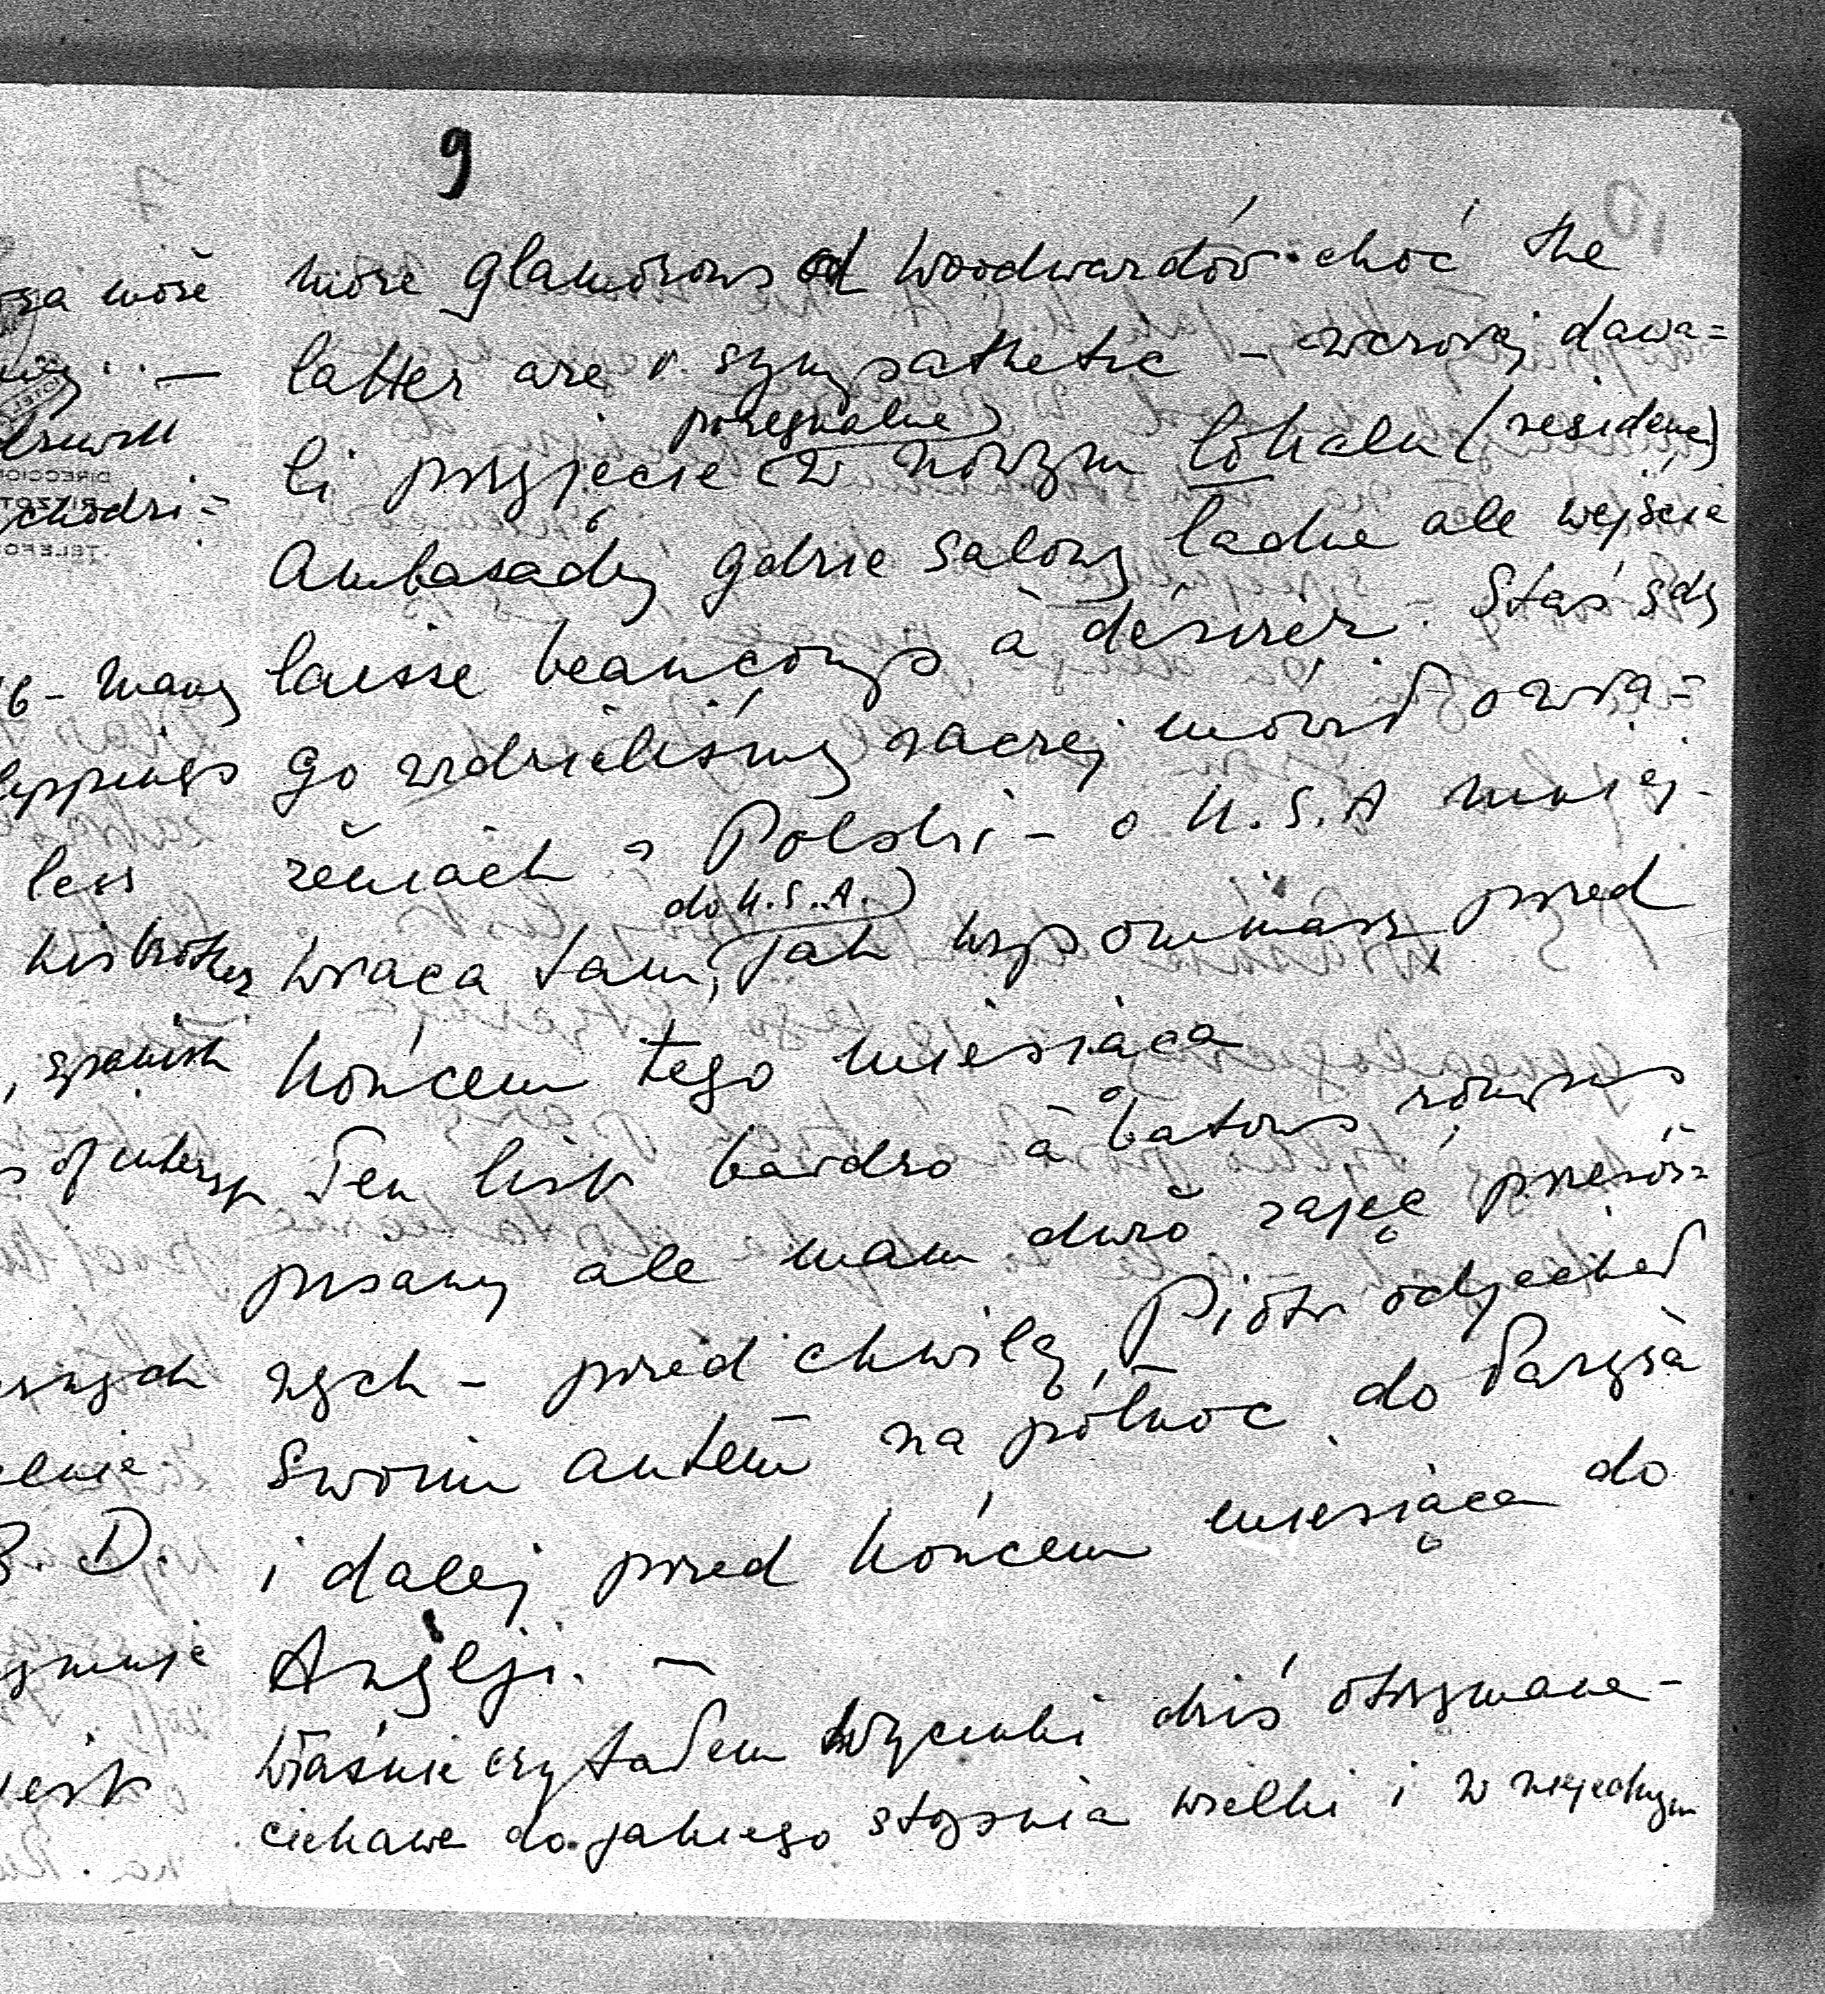 9
more glamorous od Woodwardów choć the
latter are v. sympathetic – wczoraj dawa=
li przyjęcie (pożegnalne) w nowym lokalu (residence)
Ambasady gdzie salony ładne ale wejście
laisse beaucoup à désirer. Staś gdy
go widzieliśmy raczej mówił o wra=
żeniach z Polski – o U.S.A mniej –
wraca tam, (do U.S.A.) jak wspominasz przed
końcem tego miesiąca
Ten list bardzo à bâtons rompus
pisany ale mam dużo zajęć przeróż=
nych – przed chwilą, Piotr odjechał
swoim autem na północ do Paryża
i dalej przed końcem miesiąca do
Anglji. –
Właśnie czytałem wycinki dziś otrzymane –
ciekawe do jakiego stopnia wielki i w niejednym
oża może
chodzi=
many
less
his brother
, spanish
B. D.